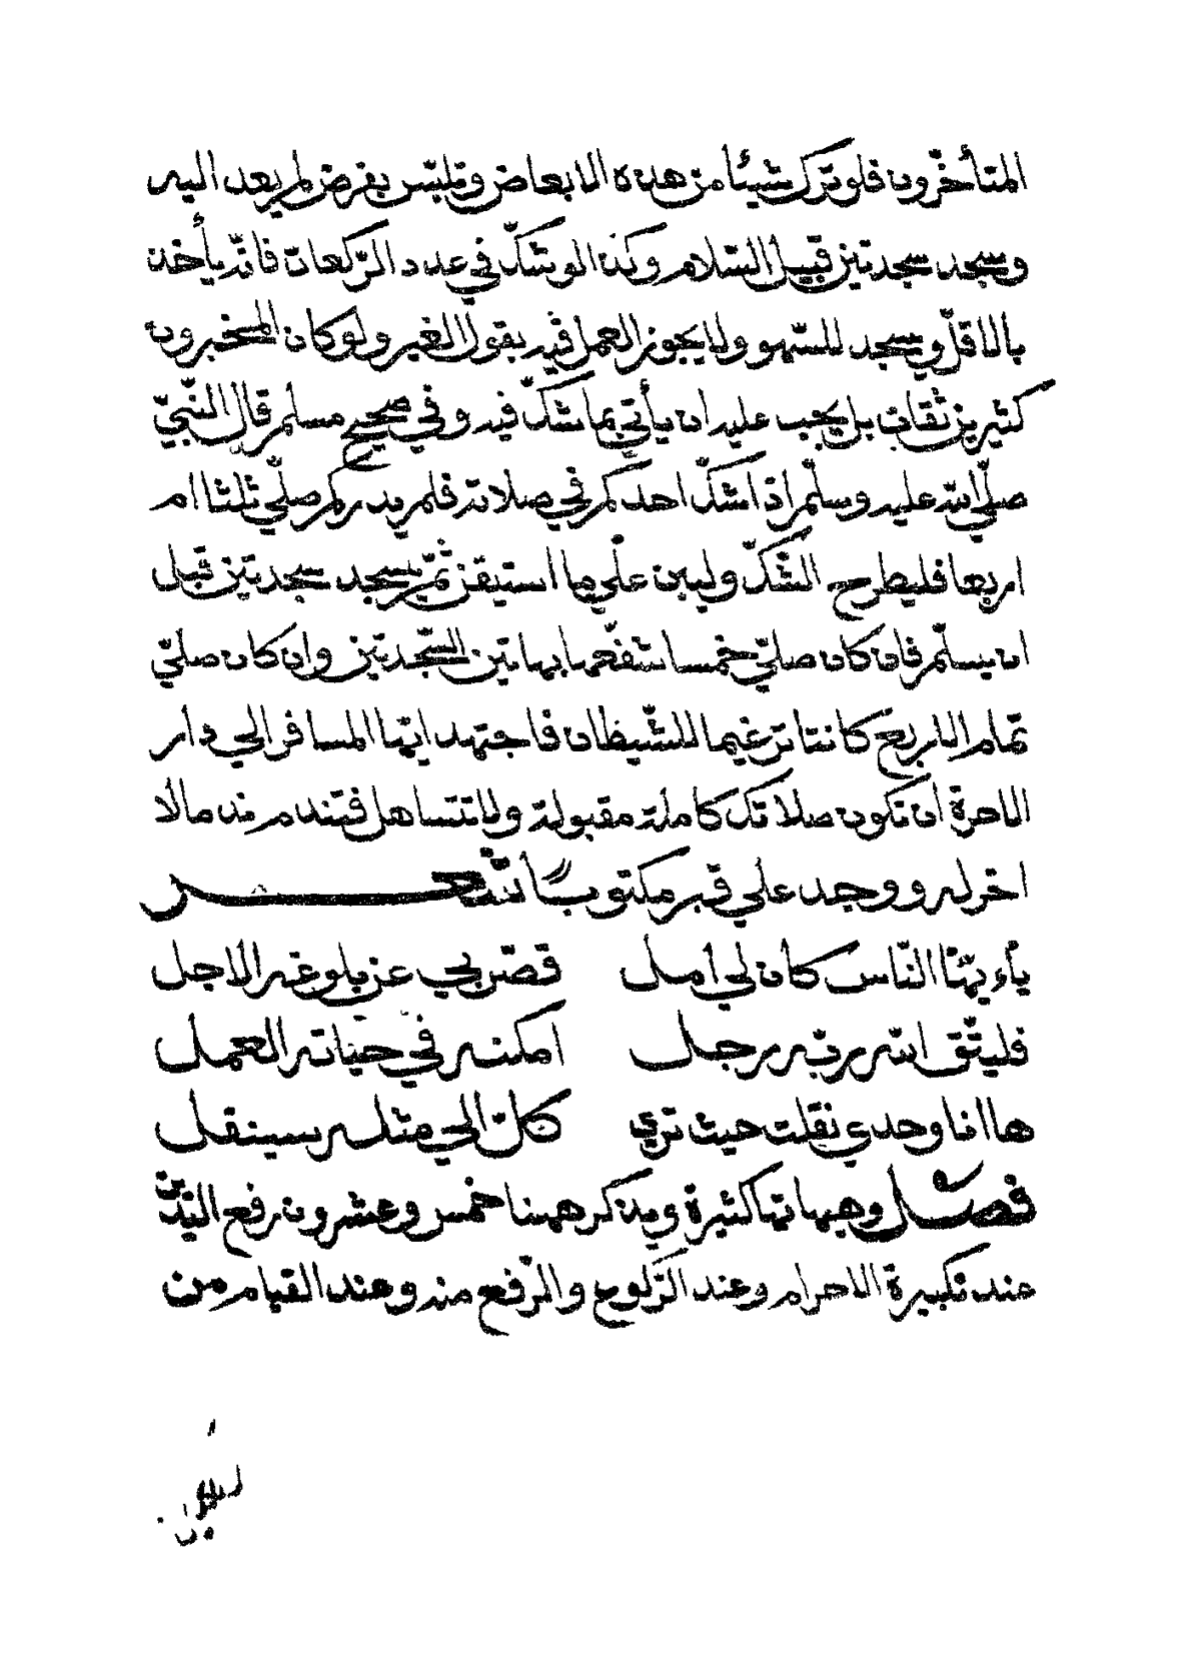 المتأخّرون فلو ترك شيئًا من هذه الابعاض وتلبّس بفرض لم يعد اليه
وسجد سجدتين قبيل السّلام وكذا لو شكّ في عدد الرّكعات فانّه يأخذ
بالاقلّ ويسجد للسّهو ولا يجوز العمل فيه بقول الغير ولو كان المخبرون
كثيرين ثقات بل يجب عليه ان يأتي بما شكّ فيه وفي صحيح مسلم قال النّبيّ
صلّي الله عليه وسلّم اذا شكّ احدكم في صلاته فلم يدر كم صلّي ثلثا ام
اربعا فليطرح الشّكّ وليبن علي ما استيقن ثمّ يسجد سجدتين قبل
ان يسلّم فان كان صلّي خمسا شفّعها بهاتين السّجدتين وان كان صلّي
تمام الاربع كانتا ترغيما للشّيطان فاجتهد ايّها المسافر الي دار
الاخرة ان تكون صلاتك كاملة مقبولة ولا تتساهل فتندم ندما لا
اخر له ووجد علي قبر مكتوبًا شعر
يأيّها النّاس كان لي أمل قصّر بي عن بلوغه الاجل
فليتّق الله ربّه رجل امكنه في حياته العمل
ها انا وحدي نقلت حيث تري كلّ الي مثله سينقل
فصل وهيآتها كثيرة ويذكر ههنا خمس وعشرون رفع اليدين
عند تكبيرة الاحرام وعند الرّكوع والرّفع منه وعند القيام من